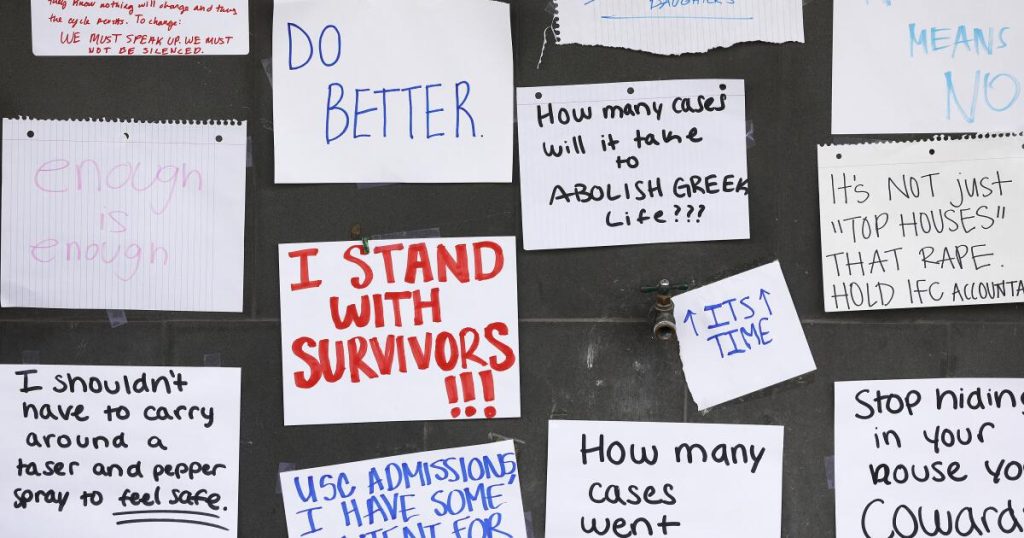 they know nothing will change and thus
the cycle persists. To change:
WE MUST SPEAK UP. WE MUST
NOT BE SILENCED.
DO
BETTER.
DAUGHTERS
MEANS
NO
enough
is
enough
How many cases
will it take
to
ABOLISH GREEK
Life???
IT'S NOT just
"TOP HOUSES"
THAT RAPE.
HOLD IFC ACCOUNTA
I STAND
WITH
SURVIVORS
!!!
↑ ITS ↑
TIME
I shouldn't
have to carry
around a
taser and pepper
spray to feel safe.
USC ADMISSIONS,
I HAVE SOME
FOR
How many
cases
went
Stop hiding
in your
house yo
Coward